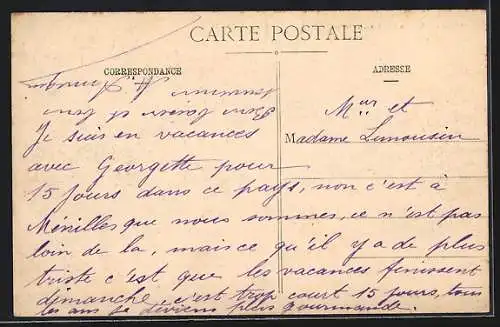 CARTE POSTALE
CORRESPONDANCE
ADRESSE
Mr et
Madame Limousin
Bon baiser et bon
Je suis en vacances
avec Georgette pour
15 jours dans ce pays, non c'est à
Ménilles que nous sommes, ce n'est pas
loin de la, mais ce qu'il y a de plus
triste c'est que les vacances finissent
dimanche, c'est trop court 15 jours, tous
les ans je deviens plus gourmande.